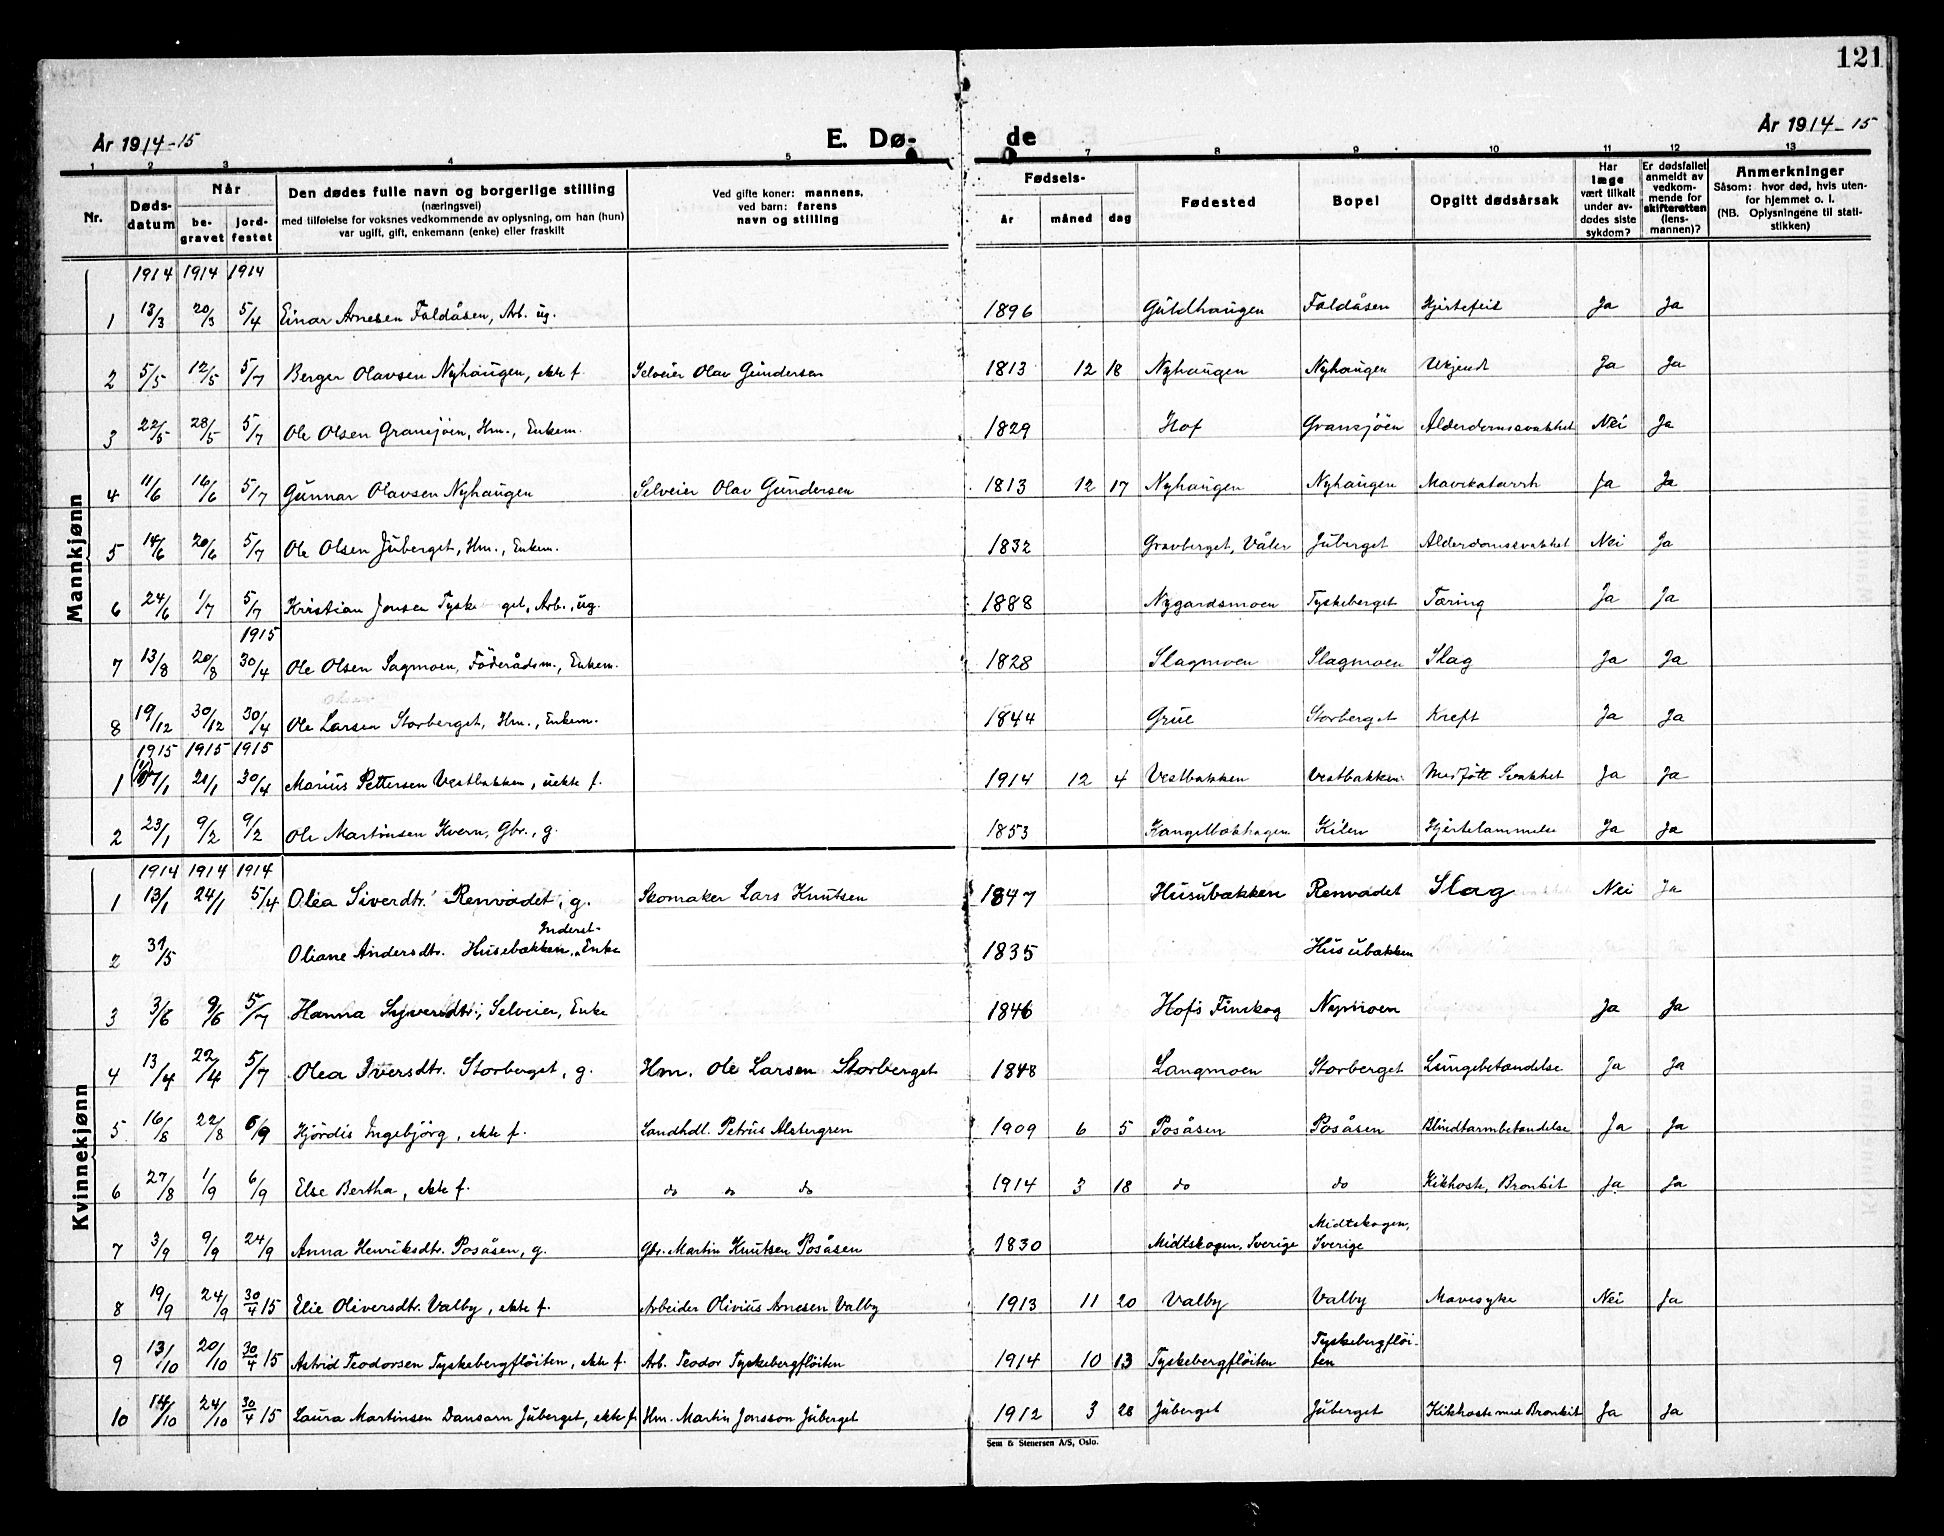 121
År 1914-15 E. Dø- de År 1914-15
1 2 3 4 5 7 8 9 10 11 12 13
Nr. Døds-datum Når be-gravet jord-festet Den dødes fulle navn og borgerlige stilling (næringsvei) med tilføielse for voksnes vedkommende av oplysning, om han (hun) var ugift, gift, enkemann (enke) eller fraskilt Ved gifte koner: mannens, ved barn: farens navn og stilling Fødsels- år måned dag Fødested Bopel Opgitt dødsårsak Har læge vært tilkalt under av-dødes siste sykdom? Er dødsfallet anmeldt av vedkom-mende for skifteretten (lens-mannen)? Anmerkninger Såsom: hvor død, hvis uten-for hjemmet o. l. (NB. Oplysningene til stati-stikken)
Mannkjønn
1914 1914 1914
1 13/3 20/3 5/4 Einar Arnesen Faldåsen, Arb. ug. 1896 Guldhaugen Faldåsen Hjertefeil Ja Ja
2 5/5 12/5 5/7 Berger Olavsen Nyhaugen, ekte f. Selveier Olav Gundersen 1813 12 18 Nyhaugen Nyhaugen Ukjendt Ja Ja
3 22/5 28/5 5/7 Ole Olsen Gransjöen, Hm., Enkem. 1829 Hof Gransjöen Alderdomssvakhet Nei Ja
4 11/6 16/6 5/7 Gunnar Olavsen Nyhaugen Selveier Olav Gundersen 1813 12 17 Nyhaugen Nyhaugen Mavekatarrh Ja Ja
5 14/6 20/6 5/7 Ole Olsen Juberget, Hm., Enkem. 1832 Gravberget, Våler Juberget Alderdomssvakhet Nei Ja
6 24/6 1/7 5/7 Kristian Jonsen Tyske get, Arb., ug. 1888 Nygardsmoen Tyskeberget Tæring Ja Ja
1915
7 13/8 20/8 30/4 Ole Olsen Sagmoen, Föderådsm., Enkem. 1828 Slagmoen Slagmoen Slag Ja Ja
8 19/12 30/12 30/4 Ole Larsen Storberget, Hm., Enkem. 1844 Grue Storberget Kreft Ja Ja
1915 1915 1915
1 21/1 30/4 Marius Pettersen Vestbakken, uekte f. 1914 12 4 Vestbakken Vestbakken Medfött Svakhet Ja Ja
2 23/1 9/2 9/2 Ole Martinsen Kvern, Gbr., g. 1853 Kilen Hjertelammelse Ja Ja
Kvinnekjønn
1914 1914 1914
1 13/1 24/1 5/4 Olea Siverdtr. Renvadet, g. Skomaker Lars Knutsen 1847 Husubakken Renvadet Slag Nei Ja
Inderst-
2 31/5 Oliane Andersdtr. Husebakken, Enke 1835 Husubakken
3 3/6 9/6 5/7 Hanna Syversdtr., Selveier, Enke 1846 Hofs Finskog Nymoen Ja Ja
4 13/4 22/4 5/7 Olea Iversdtr. Storberget, g. Hm. Ole Larsen Storberget 1848 Langmoen Storberget Lungebetændelse Ja Ja
5 16/8 22/8 6/9 Hjördis Ingebjörg, ekte f. Landhdl. Petrus Alstergren 1909 6 5 Posåsen Posåsen Blindtarmbetændelse Ja Ja
6 27/8 1/9 6/9 Else Bertha, ekte f. do do do 1914 3 18 do do Kikhoste, Bronkit Ja Ja
Midtskogen,
7 3/9 9/9 24/9 Anna Henriksdtr. Posåsen, g. Gbr. Martin Knutsen Posåsen 1830 Midtskogen, Sverige Sverige
8 19/9 24/9 30/4 15 Elie Oliversdtr. Valby, ekte f. Arbeider Olivius Arnesen Valby 1913 11 20 Valby Valby Mavesyke Nei Ja
Tyskebergflöi-
9 13/10 20/10 30/4 15 Astrid Teodorsen Tyskebergflöiten, ekte f. Arb. Teodor Tyskebergflöiten 1914 10 13 Tyskebergflöiten ten
10 14/10 24/10 30/4 15 Laura Martinsen Dansarn Juberget, ekte f. Hm. Martin Jonsson Juberget 1912 3 28 Juberget Juberget Kikhoste med Bronkit Ja Ja
Sem & Stenersen A/S, Oslo.